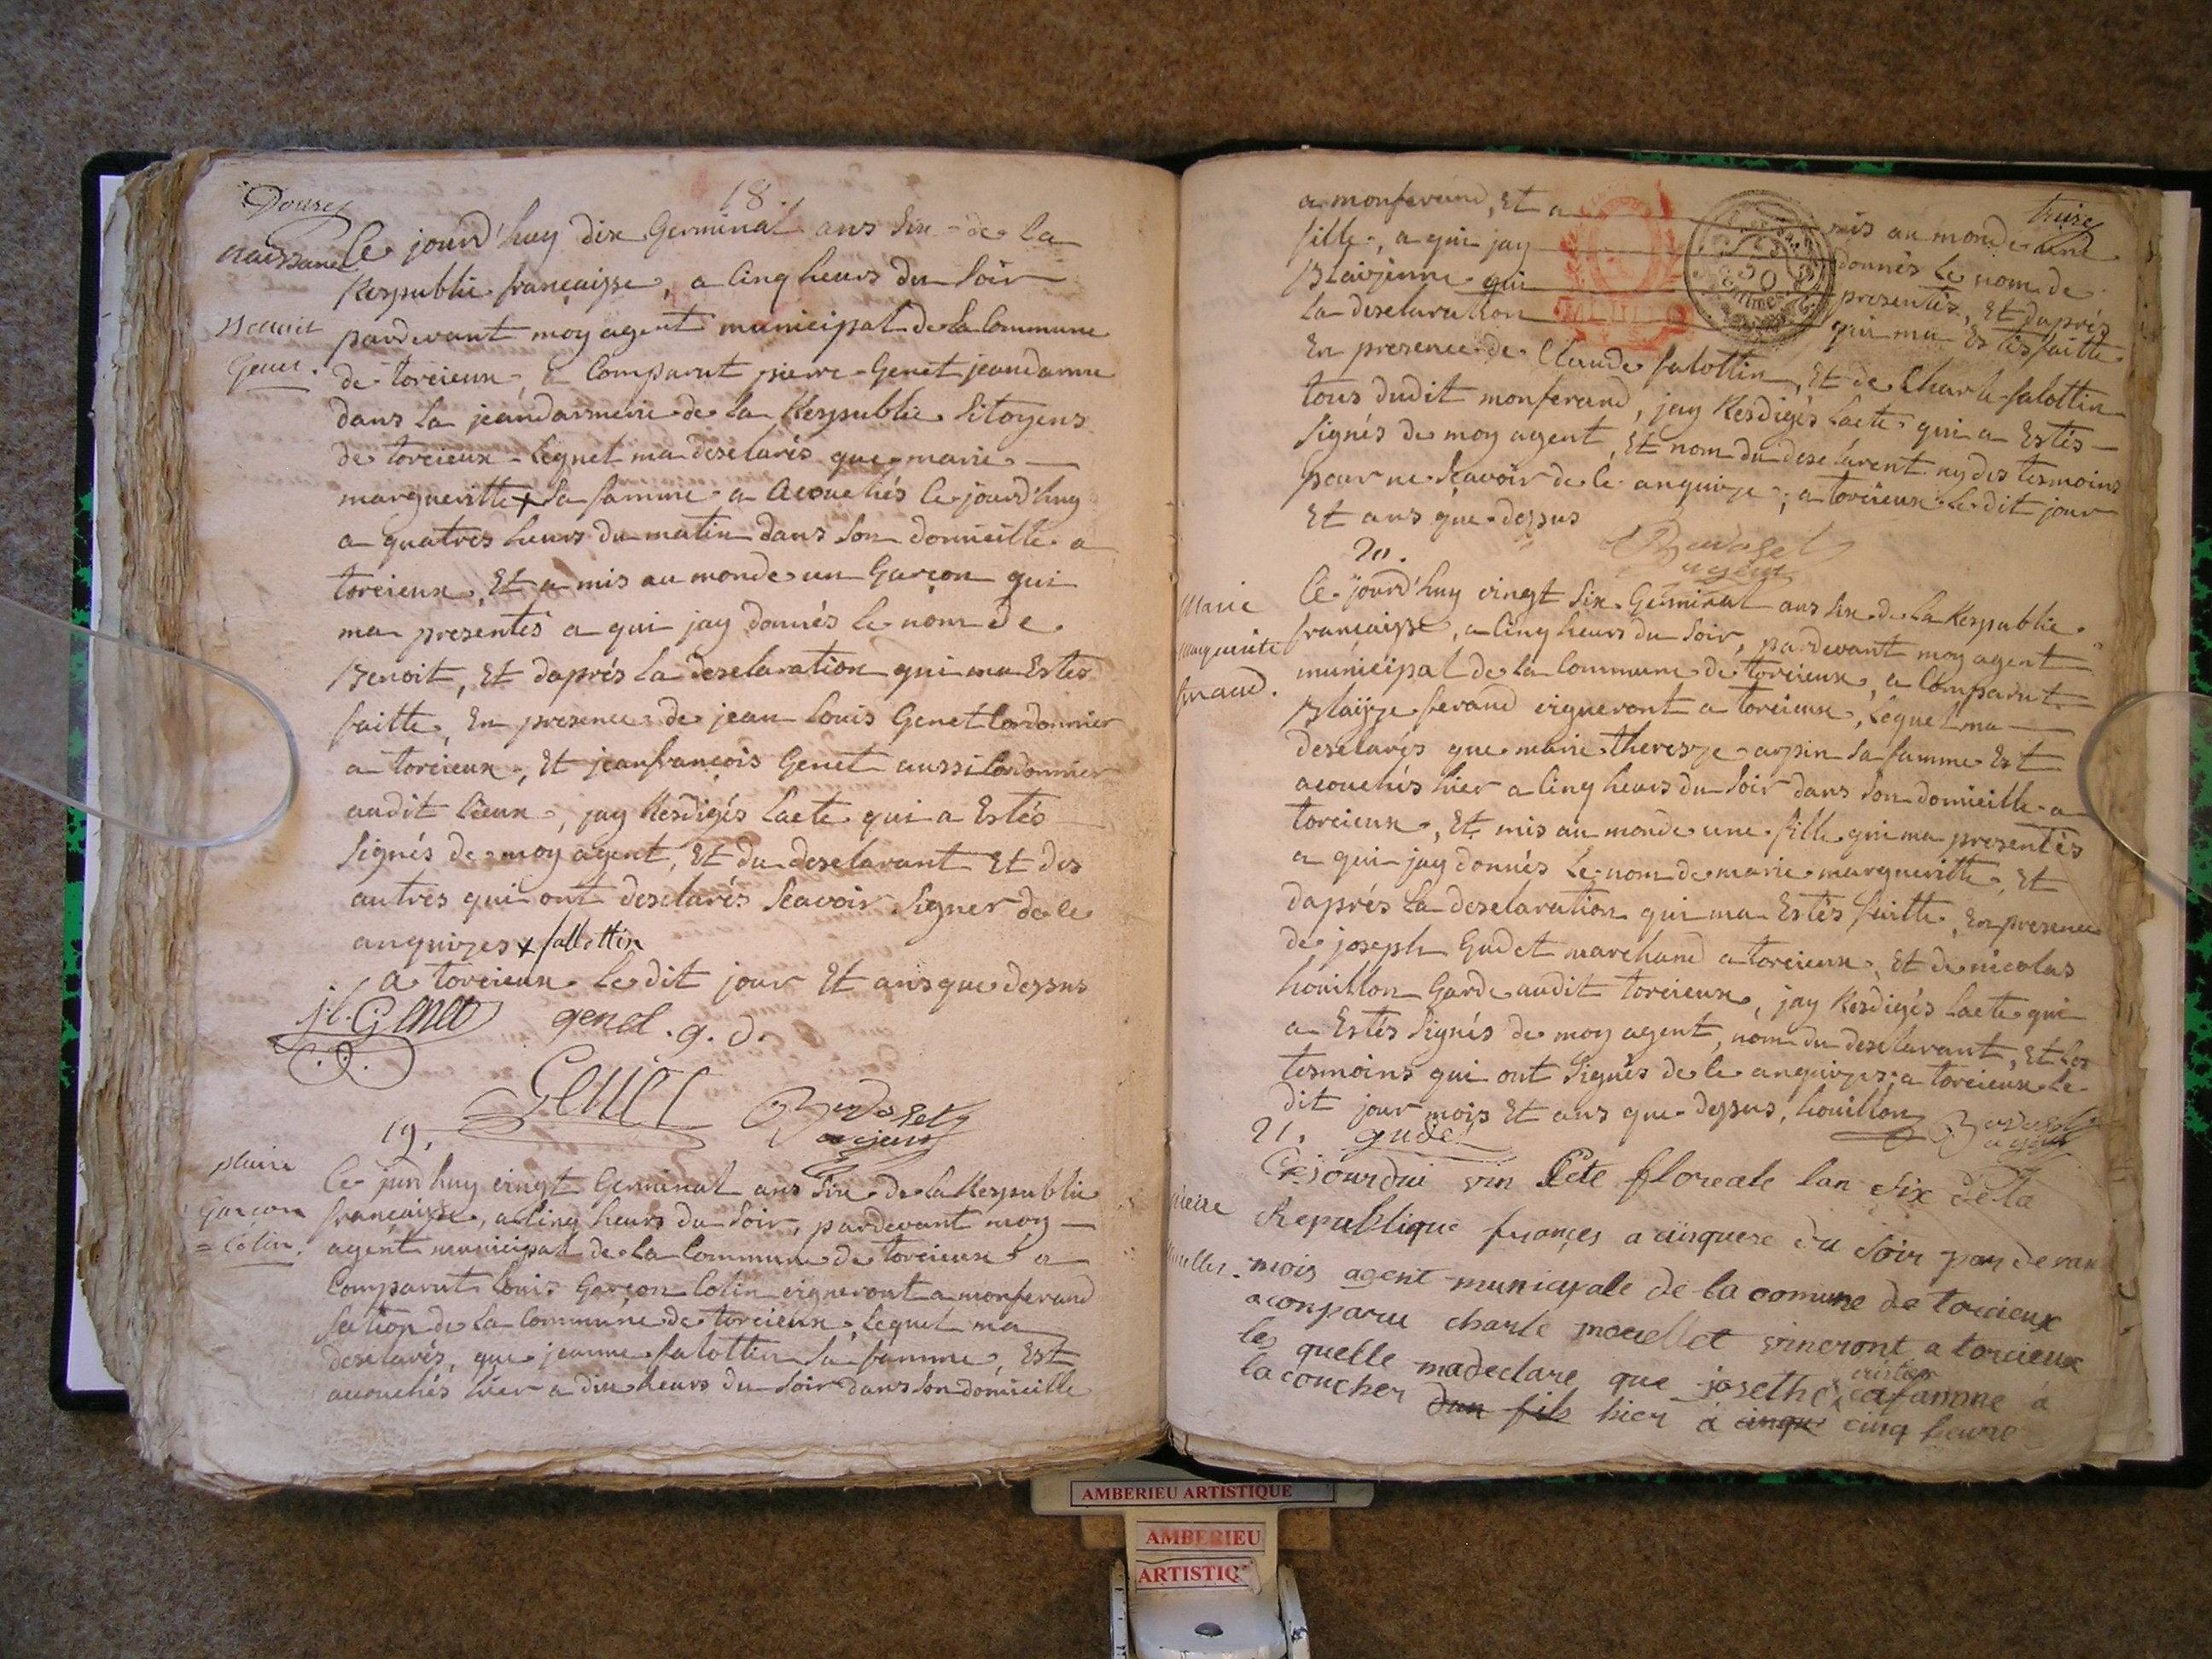 Douze
18.
naissance
Ce jourd'huy dix Germinal ans six de la
Respublie françaisse, a Cinq heurs du soir
Benoit
pardevant moy agent municipal de la Commune
Genet.
de torcieux, a Comparut pierre Genet jeandarme
dans la jeandarmerie de la Respublie Sitoyens
de torcieux Lequel ma desclarés que marie
margueritte + sa famme a acouchés Ce jourd'huy
a quatres heurs du matin dans son domicille a
torcieux, Et a mis au monde un Garçon qui
ma presentés a qui jay donnés le nom de
Benoit, Et daprés la desclaration qui ma Estés
faitte, En presence de jean Louis Genet Cordonnier
a torcieux, Et jeanfrançois Genet aussi Cordonnier
audit Lieux, jay Resdigés Lacte qui a Estés
signés de moy agent, Et du desclarant Et des
autres qui ont desclarés Scavoir Signer de le
anquizes + fallottin
a torcieux le dit jour Et ans que dessus
j.l. Genet genet. g. d.
Genet
agent
19.
Garçon
= Colin.
Ce jourdhuy vingt Germinal ans Six de la Respublie
françaisse, a Cinq heurs du soir, pardevant moy
agent municipal de la Commune de torcieux a
Comparut Louis Garçon Colin vigneront a monferand
Section de la Commune de torcieux Lequel ma
desclarés, que jeanne falottin sa famme, Est
acouchés hier a dix heurs du soir dans son domicille
treize
a monferand, Et a mis au monde une
fille, a qui jay donnés le nom de
Blaizinne qui presentés, Et daprés
la desclaration qui ma Estés faitte
En presence de Claude falottin, Et de Charle falottin
tous dudit monferand, jay Resdigés Lacte qui a Estés
signés de moy agent, Et nom du desclarent ny des tesmoins
pour ne Scavoir de le anquize, a torcieux le dit jour
Et ans que dessus
agent
20.
Marie
marguerite
feraud.
Ce jourd'huy vingt six Germinal ans six de la Respublie
françaisse, a Cinq heurs du soir, pardevant moy agent
municipal de la Commune de torcieux, a Comparut
Blaize ferand vigneront a torcieux, Lequel ma
desclarés que marie therese arpin sa famme Est
acouchés hier a Cinq heurs du soir dans son domicille a
torcieux, Et mis au monde une fille qui ma presentés
a qui jay donnés le nom de marie margueritte, Et
daprés la desclaration qui ma Estés faitte, En presence
de joseph Gudet marchand a torcieux, Et de nicolas
houillon Garde audit torcieux, jay Resdigés Lacte qui
a Estés signés de moy agent, nom du desclarant, Et les
tesmoins qui ont signés de le anquizes, a torcieux le
dit jour mois Et ans que dessus, houillon
gudet
agent
21.
pierre
Ce jourdui vin Cete floreale lan six de la
Republique françes a cinquere du soir par devan
mois agent municipale de la comune de torcieux
a conparu charle mouellet vineront a torcieux
le quelle ma declare que josethe cristin ca famme a
lacoucher dun fils hier à cinque cinq heure
AMBERIEU ARTISTIQUE
AMBERIEU
ARTISTIQ